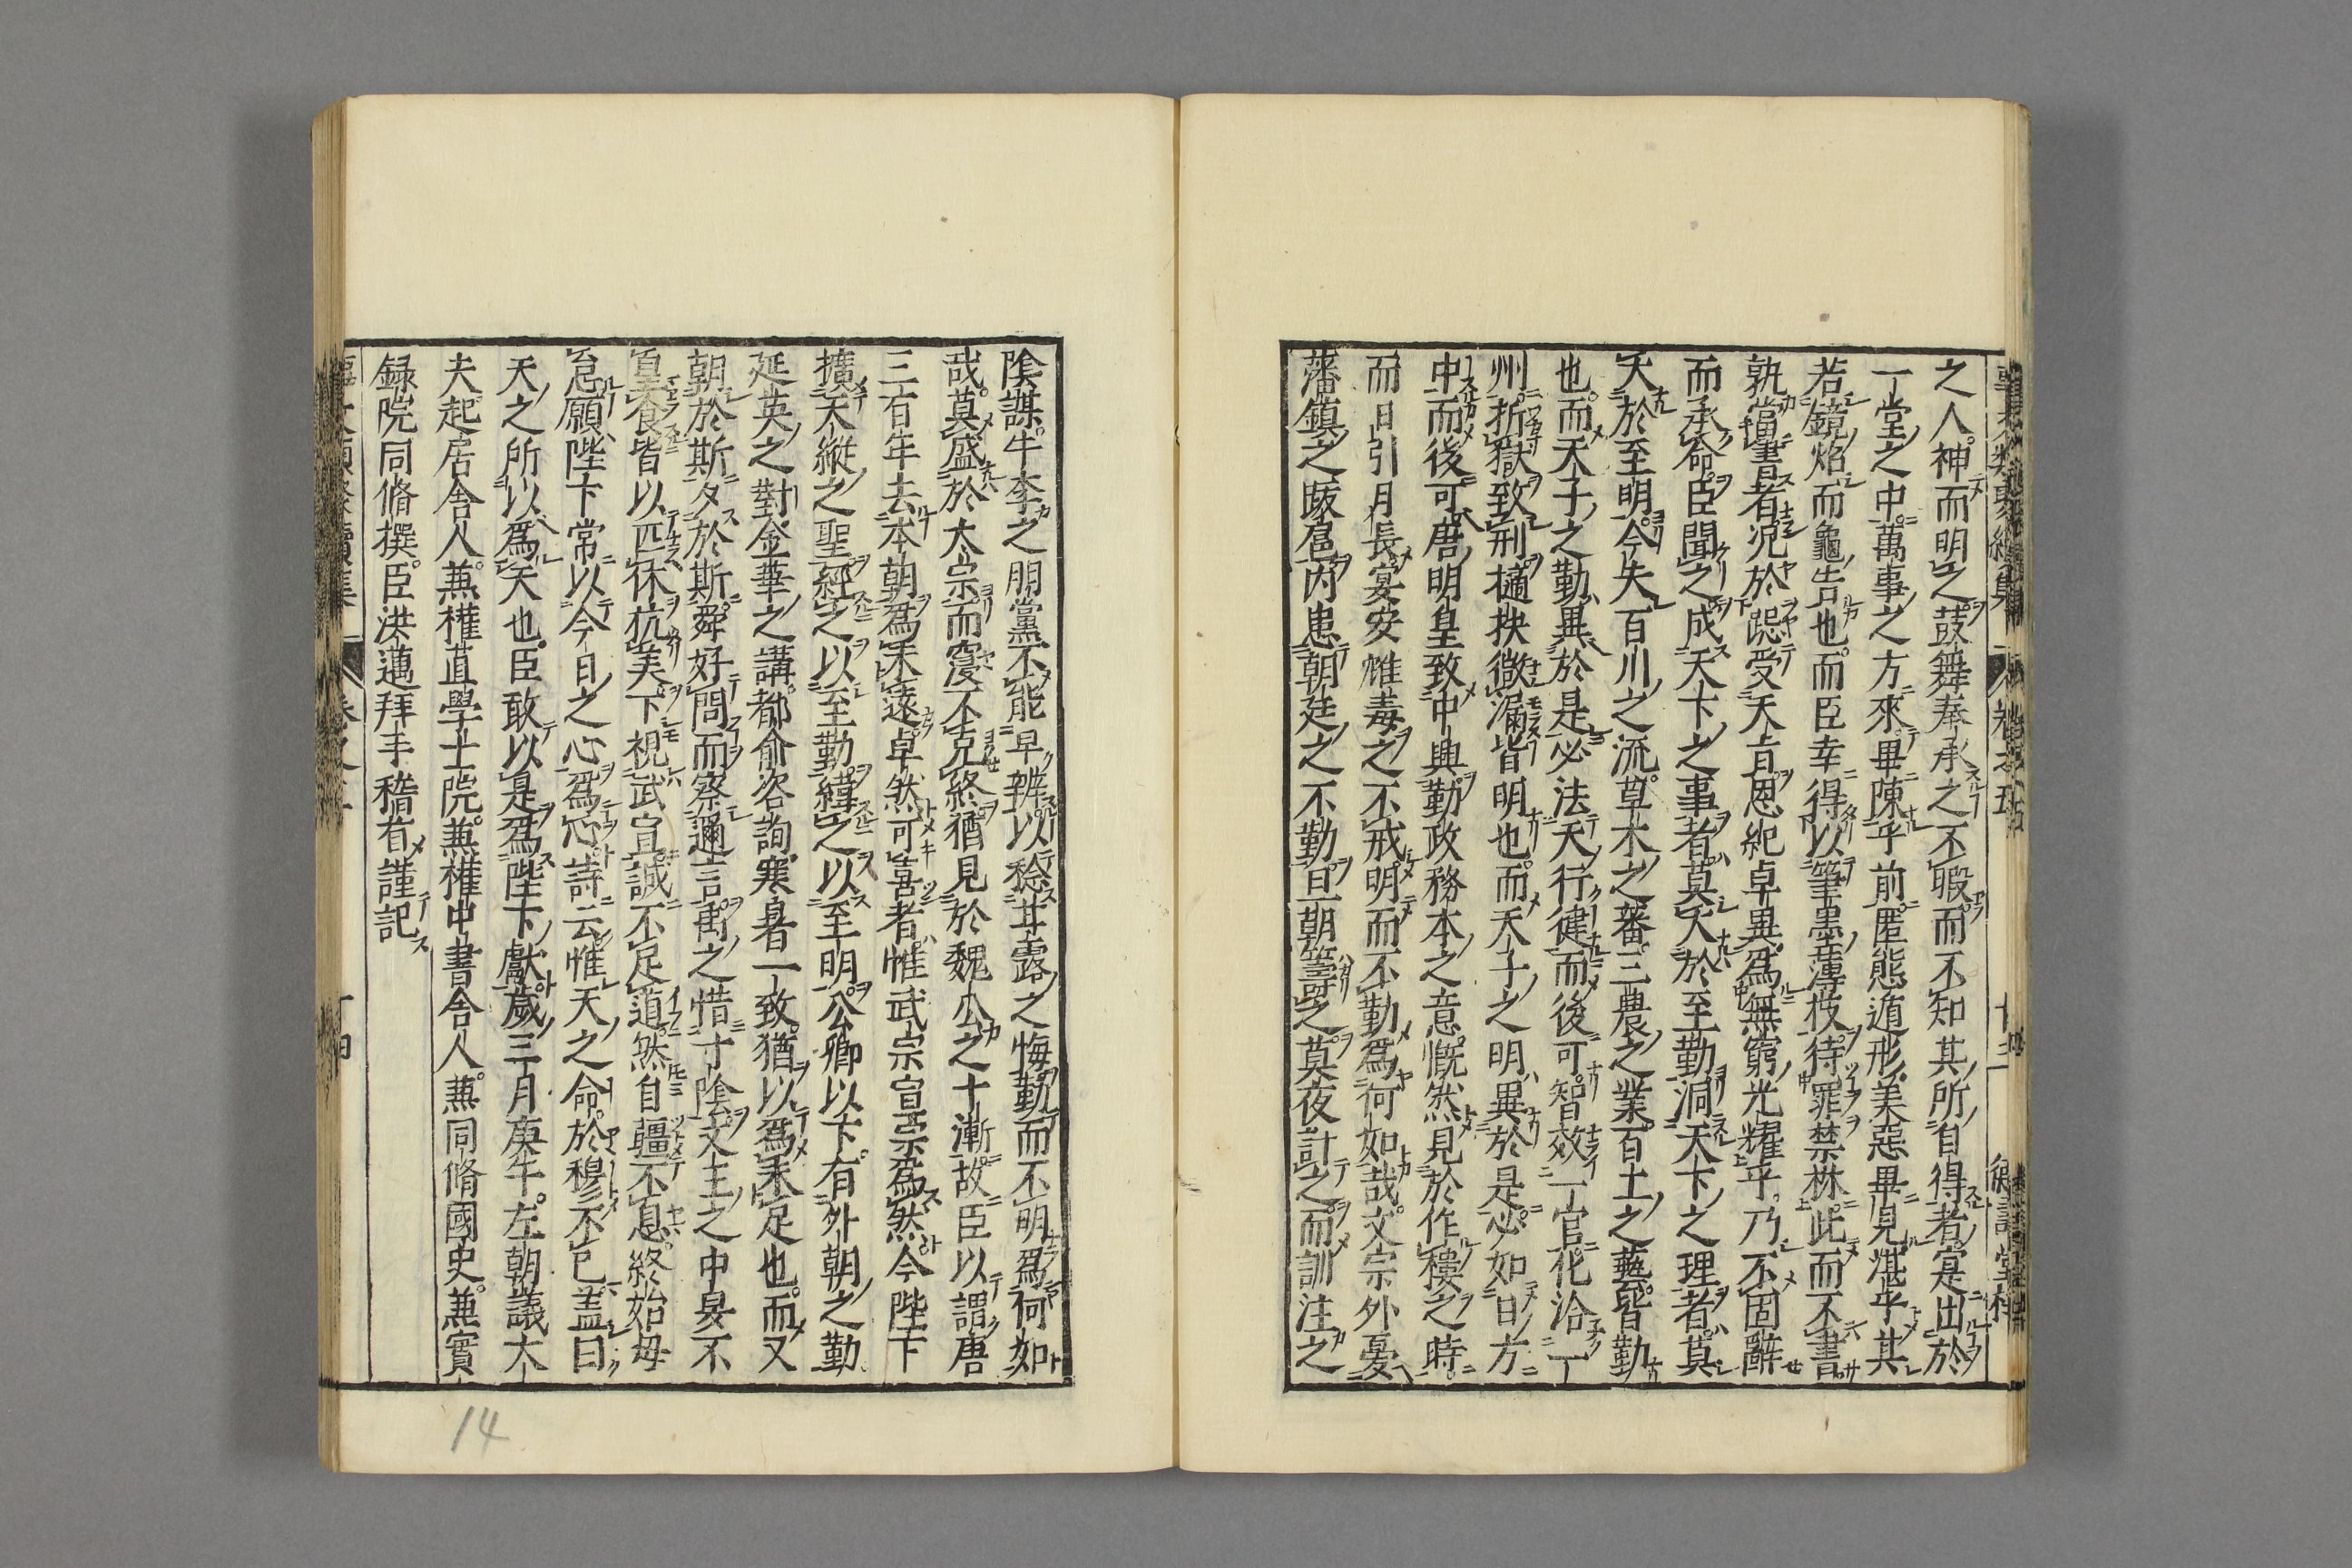 之人神而明之鼓舞奉承之不暇而不知其所自得者寔出於
一堂之中萬事之方來畢陳乎前匿態遁形美惡畢見湛乎其
若鏡焰而龜告也而臣幸得以筆墨薄技待罪禁林此而不書
孰當書者況於躬受天旨恩紀卓異爲無窮光耀乎乃不固辭
而承命臣聞之成天下之事者莫大於至勤洞天下之理者莫
大於至明今夫百川之流草木之蕃三農之業百土之藝皆勤
也而天子之勤異於是必法天行健而後可智效一官化洽一
州折獄致刑擿抉微漏皆明也而天子之明異於是必如日方
中而後可唐明皇致中興勤政務本之意慨然見於作樓之時
而日引月長宴安鴆毒之不戒明而不勤爲何如哉文宗外憂
藩鎮之跋扈内患朝廷之不勤旦朝籌之莫夜計之而訓注之
陰謀牛李之朋黨不能早辨以稔甘露之悔勤而不明爲何如
哉莫盛於太宗而窒不克終猶見於魏公之十漸故臣以謂唐
三百年去本朝爲未遠卓然可喜者惟武宗宣宗爲然今陛下
擴天縱之聖經之以至勤緯之以至明公卿以下有外朝之勤
延英之對金華之講都俞咨詢寒暑一致猶以爲未足也而又
朝於斯夕於斯舜好問而察邇言禹之惜寸陰文王之中昃不
皇食皆以匹休抗美下視武宣誠不足道然自疆不息終始毋
怠願陛下常以今日之心爲心詩云惟天之命於穆不已盖曰
天之所以爲天也臣敢以是爲陛下獻歲三月庚午左朝議大
夫起居舍人兼權直學士院兼權中書舍人兼同脩國史兼實
録院同脩撰臣洪邁拜手稽首謹記